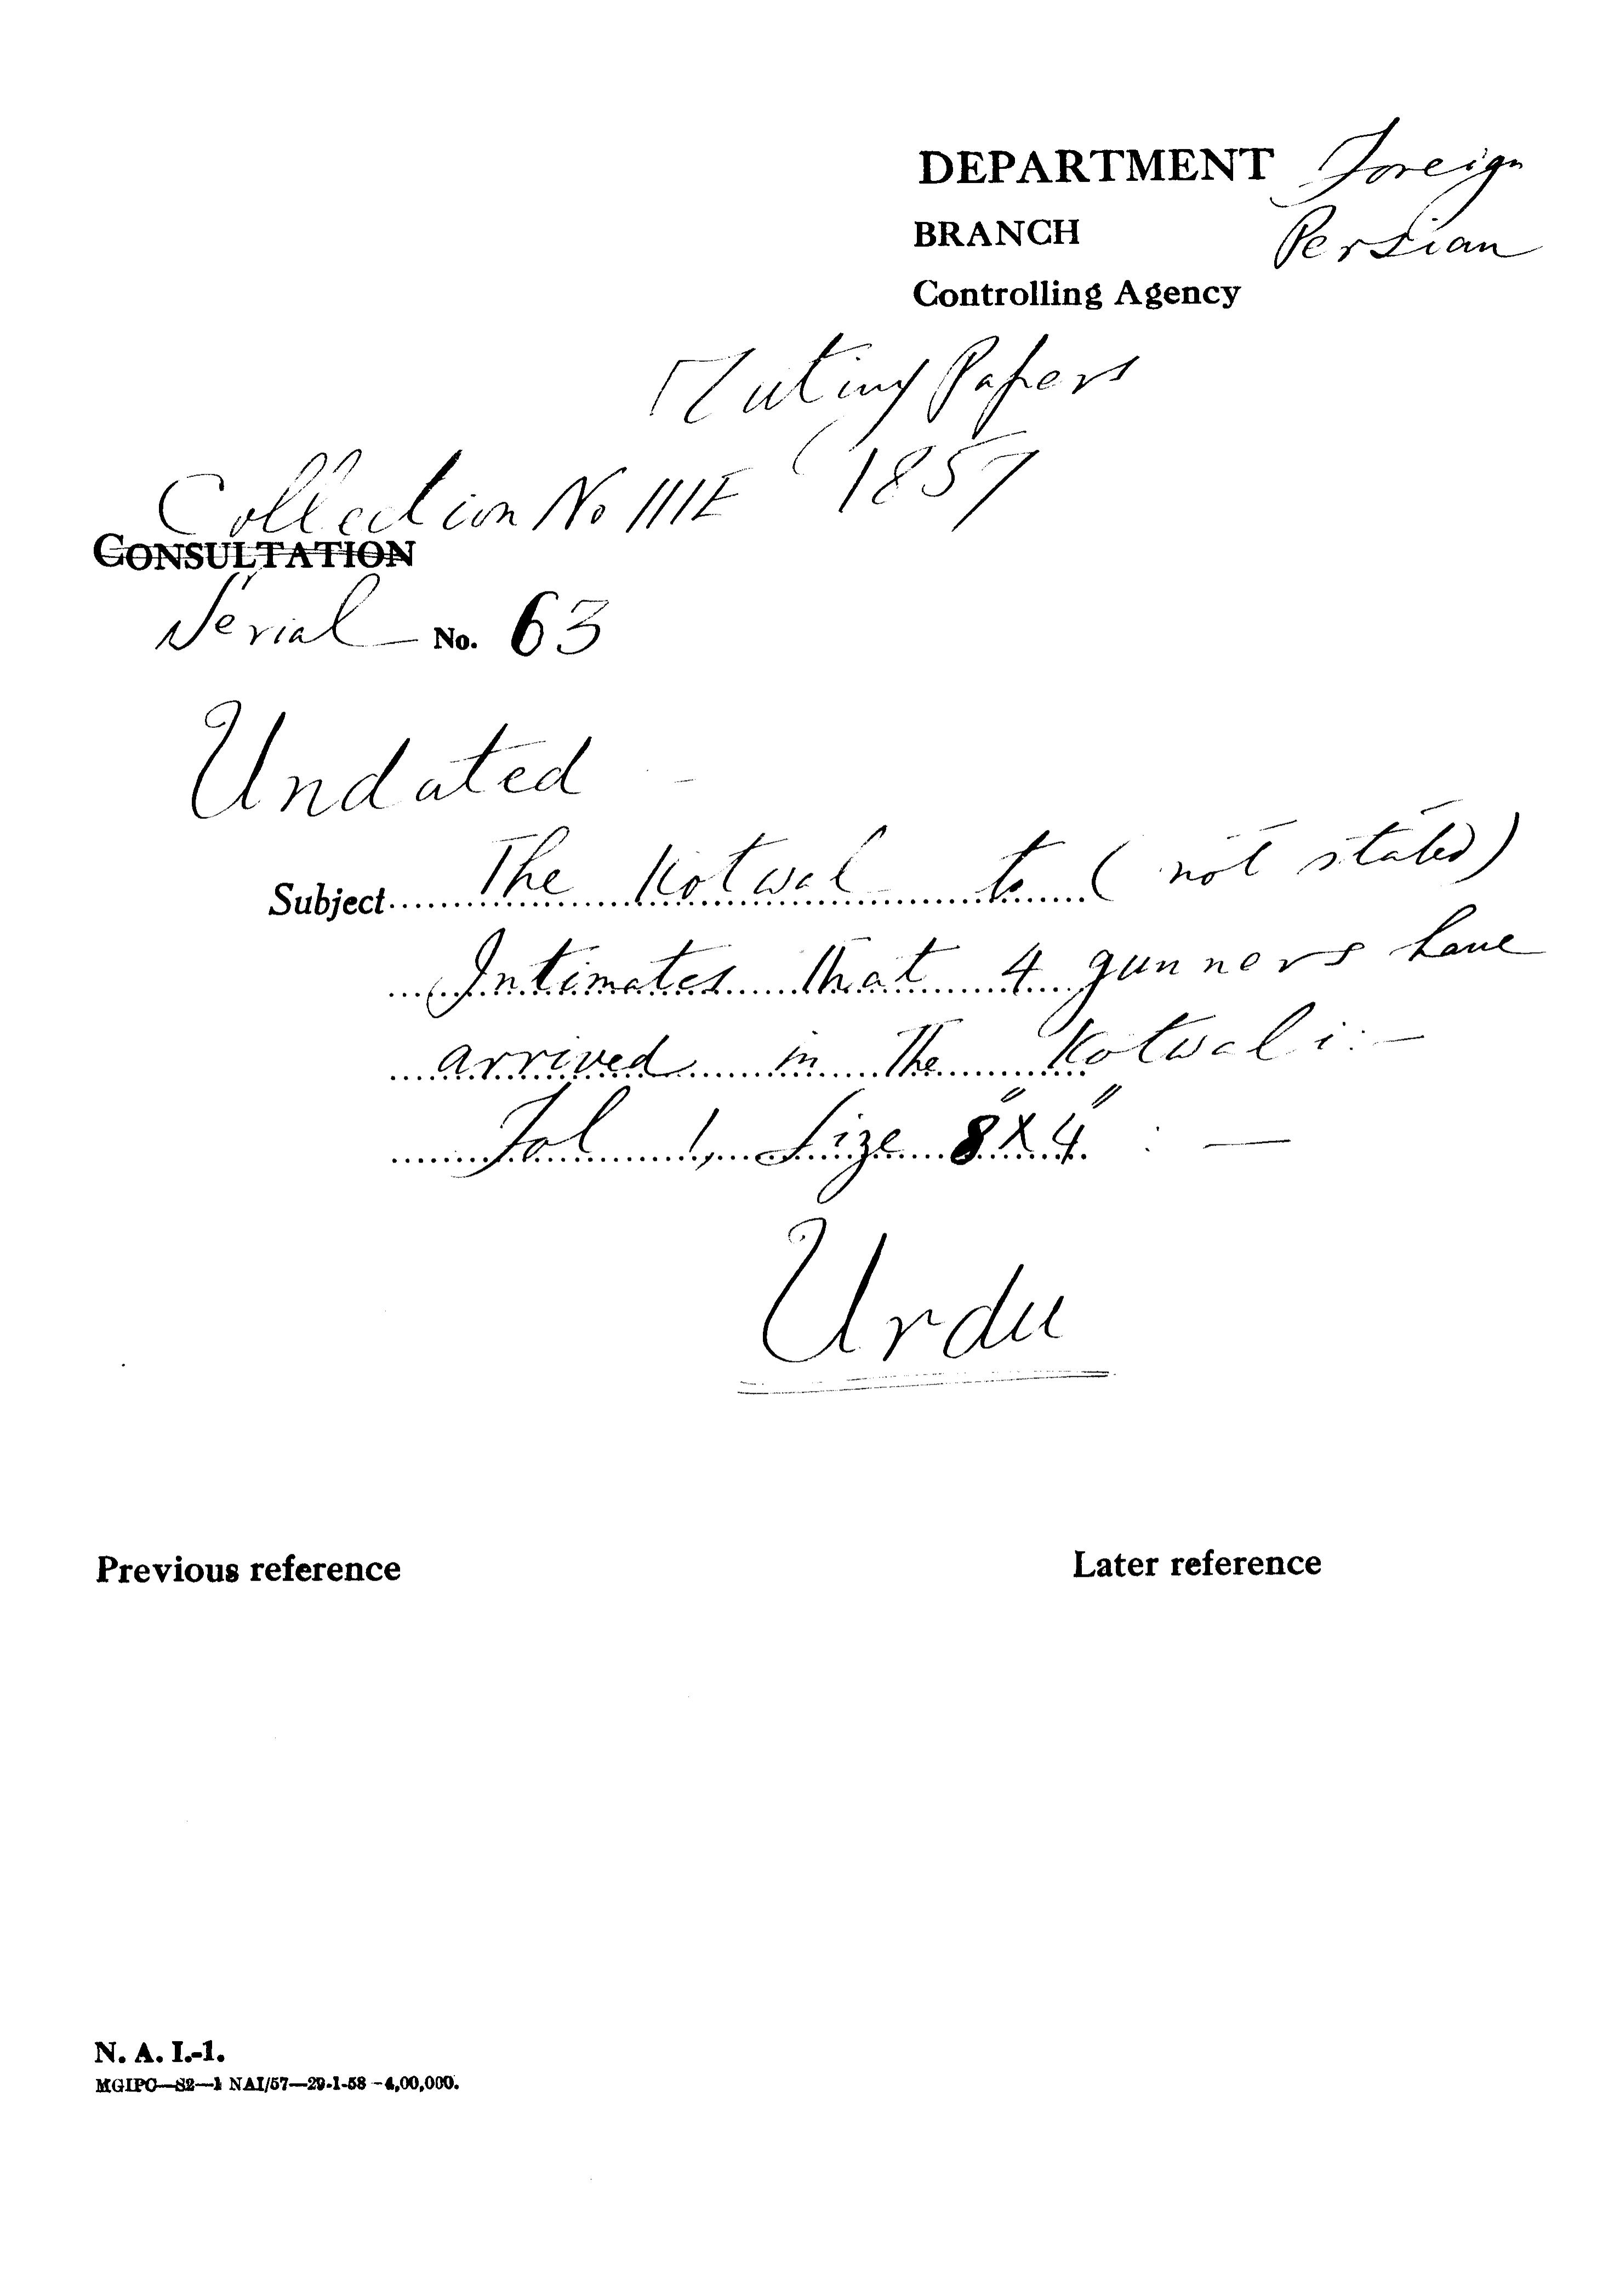 DEPARTMENT Foreign
BRANCH Persian
Controlling Agency
Mutiny Papers
1857
Collection No IIIE
CONSULTATION
Serial No. 63
Undated -
Subject The Kotwal to (not stated)
Intimates that 4 gunners have
arrived in the Kotwali:-
Fol 1, Size 8"X4" : —
Urdu
Previous reference Later reference
N. A. I.-1.
MGIPC—S2—1 NAI/57—29-1-58—4,00,000.